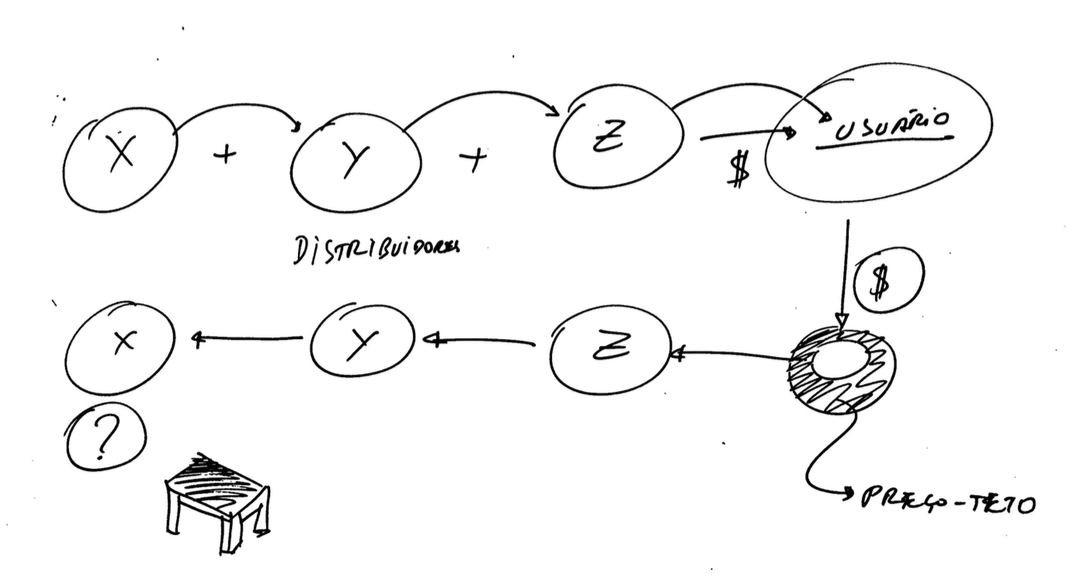 X + Y + Z $ USUÁRIO
DISTRIBUIDORES
$
X Y Z
?
PREÇO-TETO